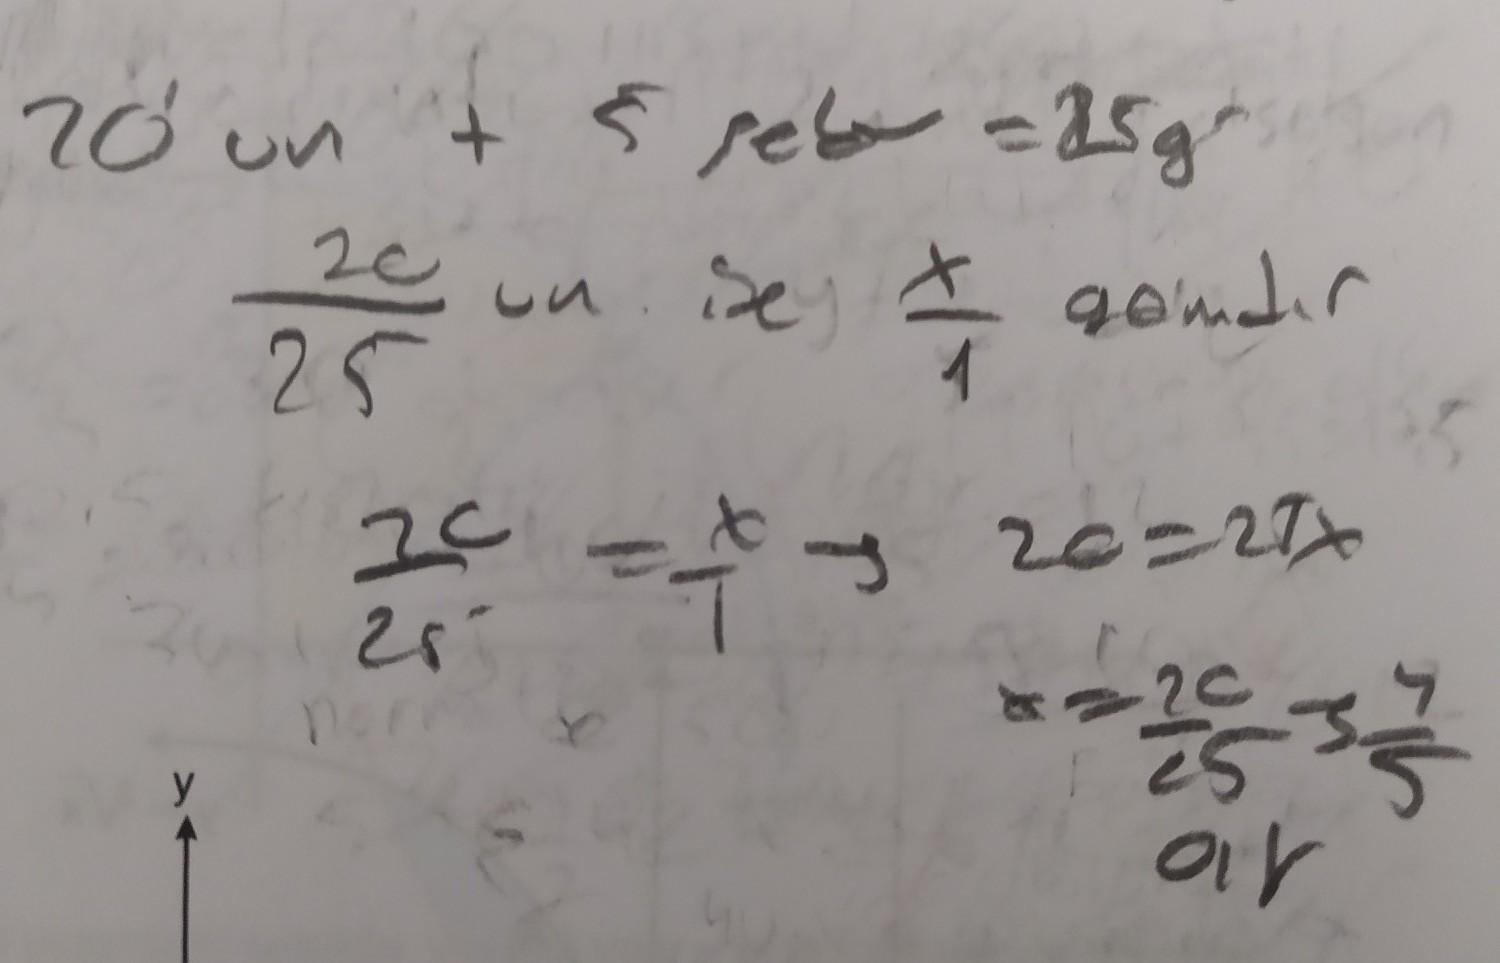 20 un + 5 şeker = 25g
20/25 un ise x/1 gramdır
20/25 = x/1 → 20 = 25x
x = 20/25 → 4/5
y